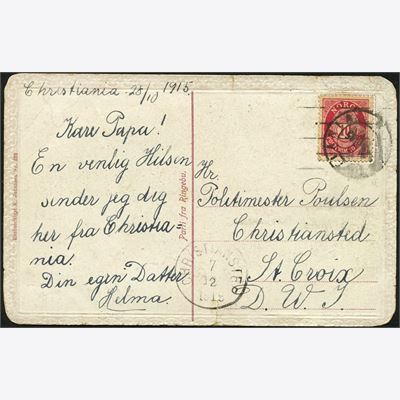 Christiania 28/10 1915.
Kære Papa!
En venlig Hilsen
sinder jeg dig
her fra Christia
nia.
Din egen Datter
Helma.
Parti fra Ringebu.
Hr.
Politimester Poulsen
Christiansted
St. Croix
D. W. I
NORGE
CHRISTIANSTED
7
12
1915